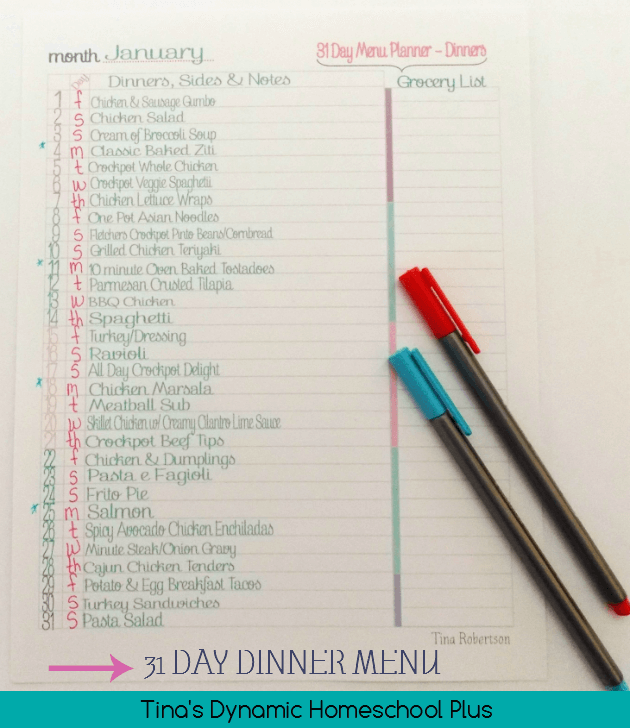 month January
31 Day Menu Planner - Dinners
Day Dinners, Sides & Notes
Grocery List
1 f Chicken & Sausage Gumbo
2 s Chicken Salad
3 s Cream of Broccoli Soup
* 4 m Classic Baked Ziti
5 t Crockpot Whole Chicken
6 w Crockpot Veggie Spaghetti
7 th Chicken Lettuce Wraps
8 f One Pot Asian Noodles
9 s Fletchers Crockpot Pinto Beans/Cornbread
10 s Grilled Chicken Teriyaki
* 11 m 10 minute Oven Baked Tostadoes
12 t Parmesan Crusted Tilapia
13 w BBQ Chicken
14 th Spaghetti
15 f Turkey/Dressing
16 s Ravioli
17 s All Day Crockpot Delight
* 18 m Chicken Marsala
19 t Meatball Sub
20 w Skillet Chicken w/ Creamy Cilantro Lime Sauce
21 th Crockpot Beef Tips
22 f Chicken & Dumplings
23 s Pasta e Fagioli
24 s Frito Pie
* 25 m Salmon
26 t Spicy Avocado Chicken Enchiladas
27 w Minute Steak/Onion Gravy
28 th Cajun Chicken Tenders
29 f Potato & Egg Breakfast Tacos
30 s Turkey Sandwiches
31 s Pasta Salad
Tina Robertson
31 DAY DINNER MENU
Tina's Dynamic Homeschool Plus